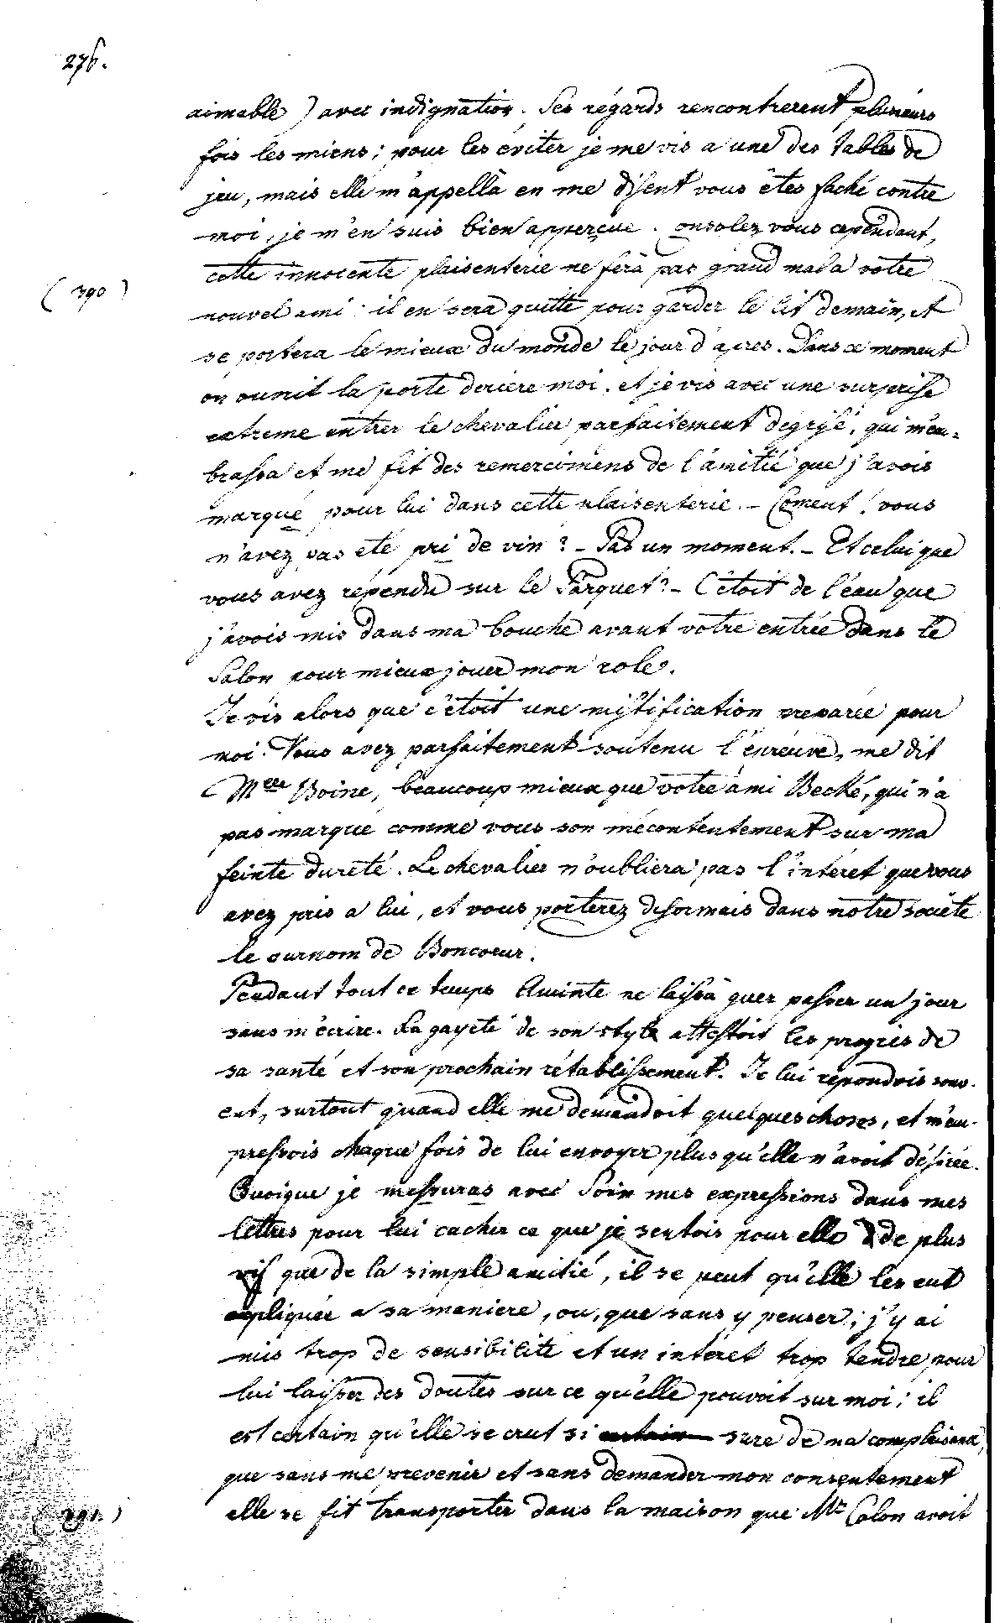 276.
aimable) avec indignation. Ses régards rencontrerent plusieurs
fois les miens; pour les éviter je me vis a une des tables de
jeu, mais elle m'appellà en me disent vous êtes faché contre
moi, je m'en suis bien apperçue. onsolez vous cependant,
cette innocente plaisenterie ne fera pas grand mal a votre
(390)
nouvel ami: il en sera quitte pour garder le lit demain, et
se portera le mieux du monde le jour d'après. Dans ce moment
on ouvrit la porte deriere moi, et je vis avec une surprise
extreme entrer le chevalier parfaitement degrisé, qui m'em-
brassa et me fit des remercimens de l'amitié que j'avois
marqué pour lui dans cette plaisenterie. - Coment! vous
n'avez pas eté pri de vin? - Pas un moment. - Et celui que
vous avez répendu sur le Parquet? - C'étoit de l'eau que
j'avois mis dans ma bouche avant votre entrée dans le
Salon pour mieux jouer mon role.
Je vis alors que c'étoit une mistification preparée pour
moi. Vous avez parfaitement soutenu l'epreuve, me dit
Mme Boine, beaucoup mieux que votre ami Becké, qui n'a
pas marqué comme vous son mécontentement sur ma
feinte dureté. Le chevalier n'oubliera pas l'intéret que vous
avez pris a lui, et vous porterez désormais dans notre societe
le surnom de Boncoeur.
Pendant tout ce temps Aminte ne laissà guer passer un jour
sans m'écrire. La gayeté de son style attestoit les progrès de
sa santé et son prochain rétablissement. Je lui repondois souv-
ent, surtout quand elle me demandoit quelques choses, et m'em-
pressois chaque fois de lui envoyer plus qu'elle n'avoit désirée.
Quoique je messuras avec soin mes expressions dans mes
lettres pour lui cacher ce que je sentois pour elle de plus
vif que de la simple amitié, il se peut qu'elle les eut
expliquée a sa maniere, ou, que sans y penser; j'y ai
mis trop de sensibilité et un interet trop tendre pour
lui laisser des doutes sur ce qu'elle pouvoit sur moi; il
est certain qu'elle se crut si sure de ma complaisance,
que sans me prevenir et sans demander mon consentement
elle se fit transporter dans la maison que Mr Colon avoit
(391.)